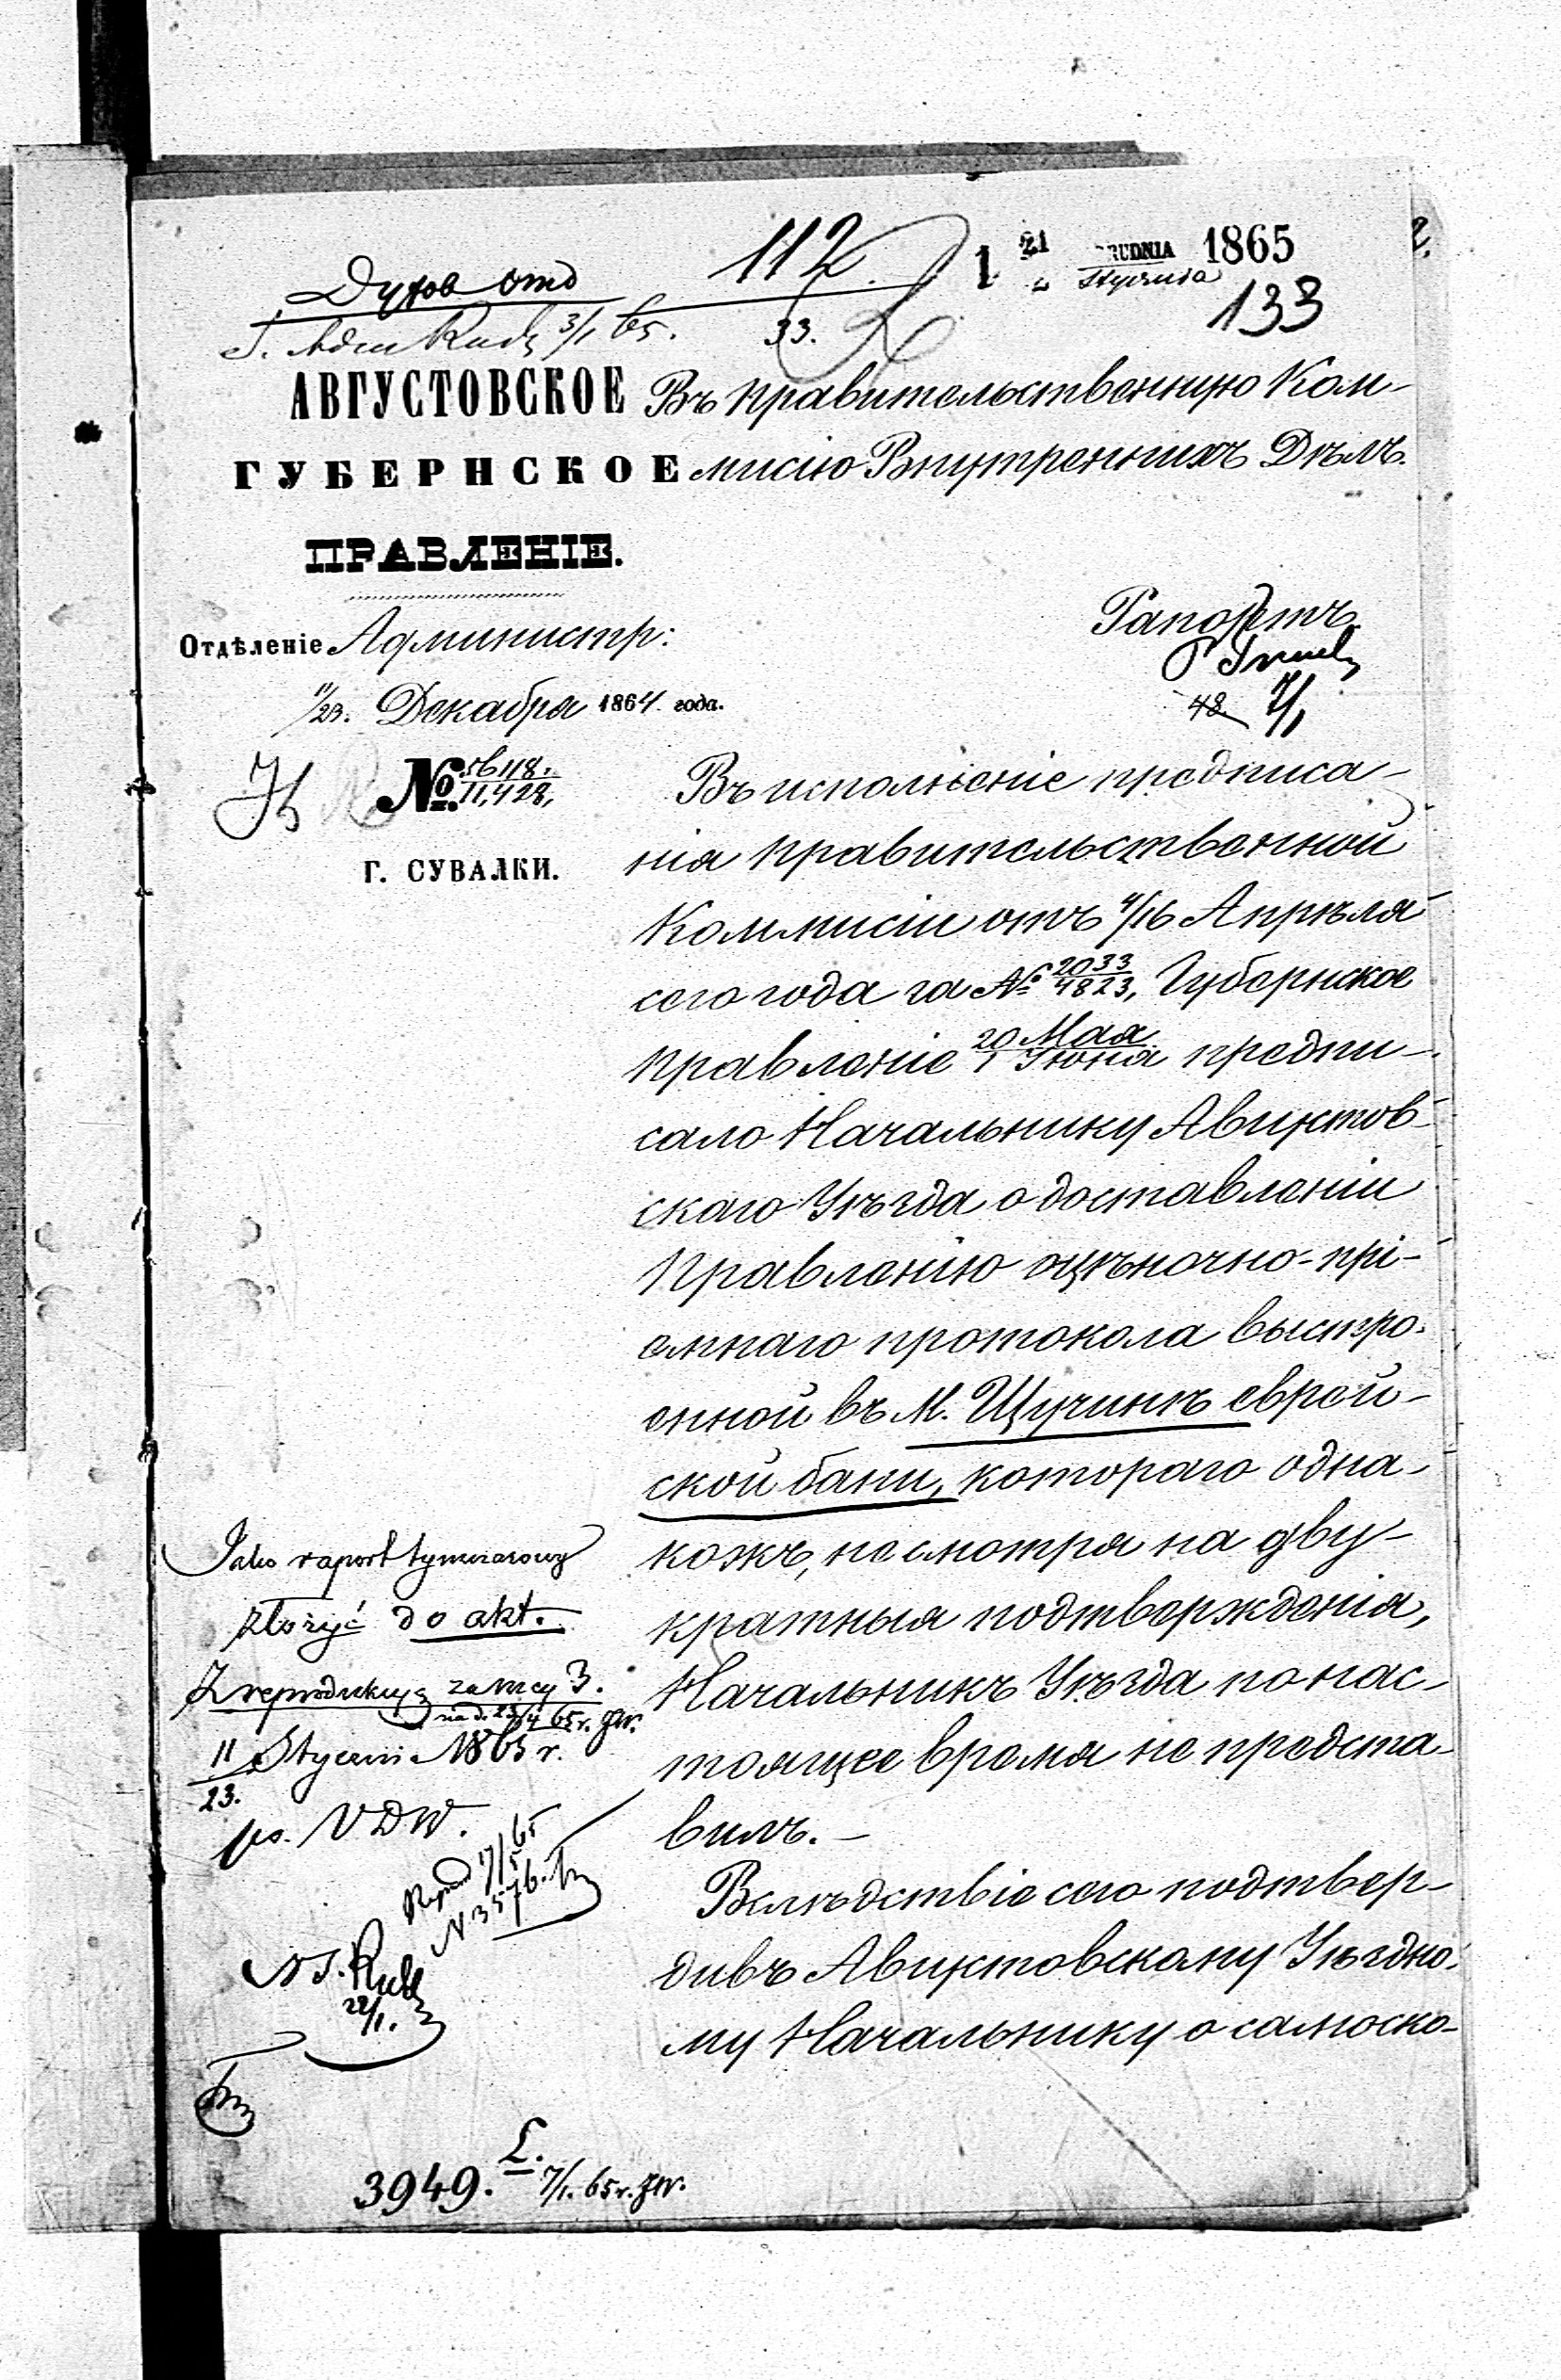 112
1 21 GRUDNIA 1865
Stycznia
133
Духов отд
3/1 65.
33.
АВГУСТОВСКОЕ
ГУБЕРНСКОЕ
ПРАВЛЕНІЕ.
Отдѣленіе Администр:
11/23. Декабря 1864 года.
№ 56118. / 11,428,
Г. СУВАЛКИ.
Въ Правительственную Ком-
мисію Внутреннихъ Дѣлъ.
Рапортъ.
48. 7/1
Въ исполненіе предписа-
нія Правительственной
Коммисіи отъ 4/16 Апрѣля
сего года за № 2033/4823, Губернское
Правленіе 20 Мая / 1 Іюня предпи-
сало Начальнику Августов-
скаго Уѣзда о доставленіи
Правленію оцѣночно-прі-
емнаго протокола выстро-
енной въ М. Щучинѣ еврей-
ской бани, котораго одна-
кожъ, не смотря на дву-
кратныя подтвержденія,
Начальникъ Уѣзда по нас-
тоящее время не предста-
вилъ. —
Вслѣдствіе сего подтвер-
дивъ Августовскому Уѣздно-
му Начальнику о самоско-
Jako raport tymczasowy
złożyć do akt.
Z reprodukcyą za mcy 3.
na d. 23/4 65 r.
11/23. Stycznia 1865 r.
ps. VDW.
17/5 65
N 3576.
22/1.
3949. 7/1. 65 r.